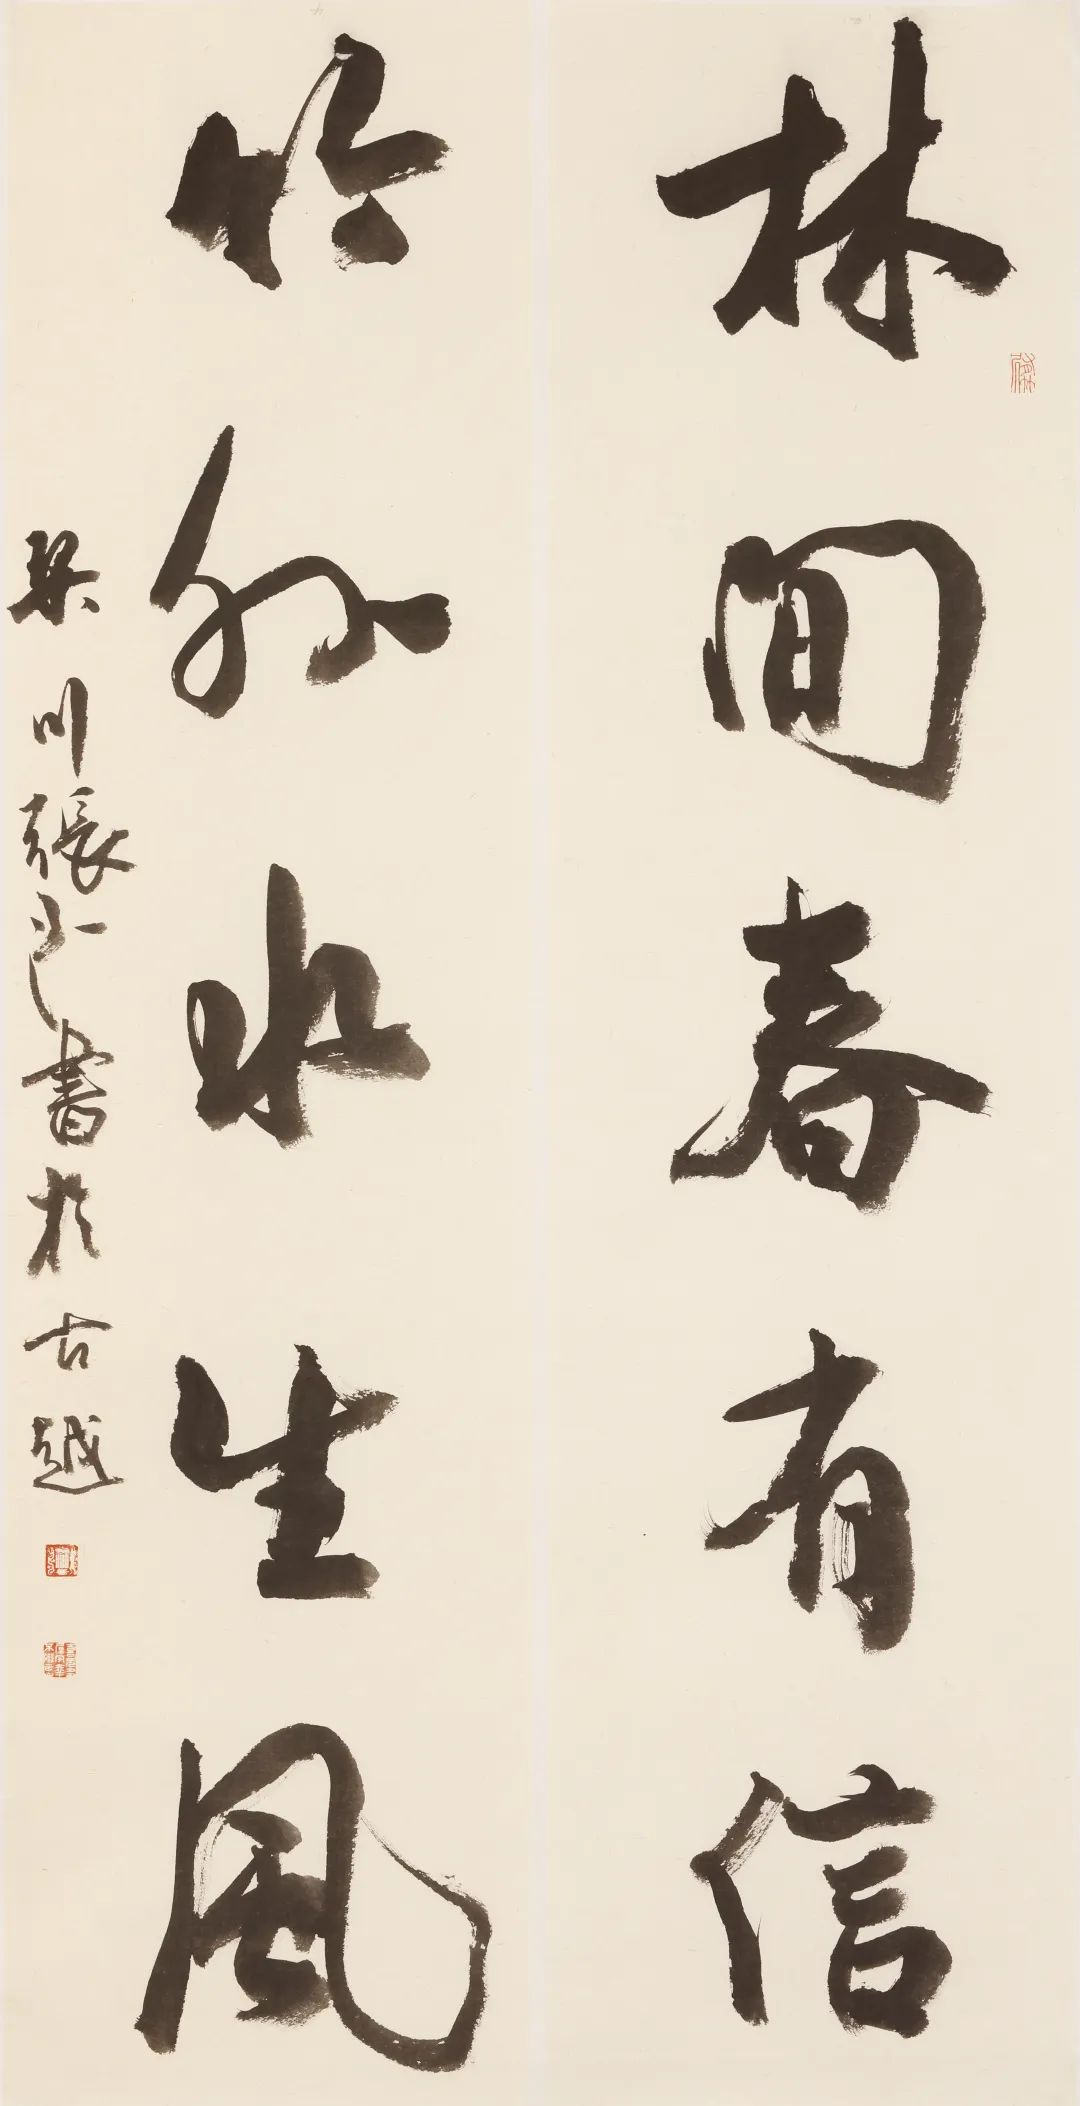 林間春有信
竹外水生風
琴川張書於古越